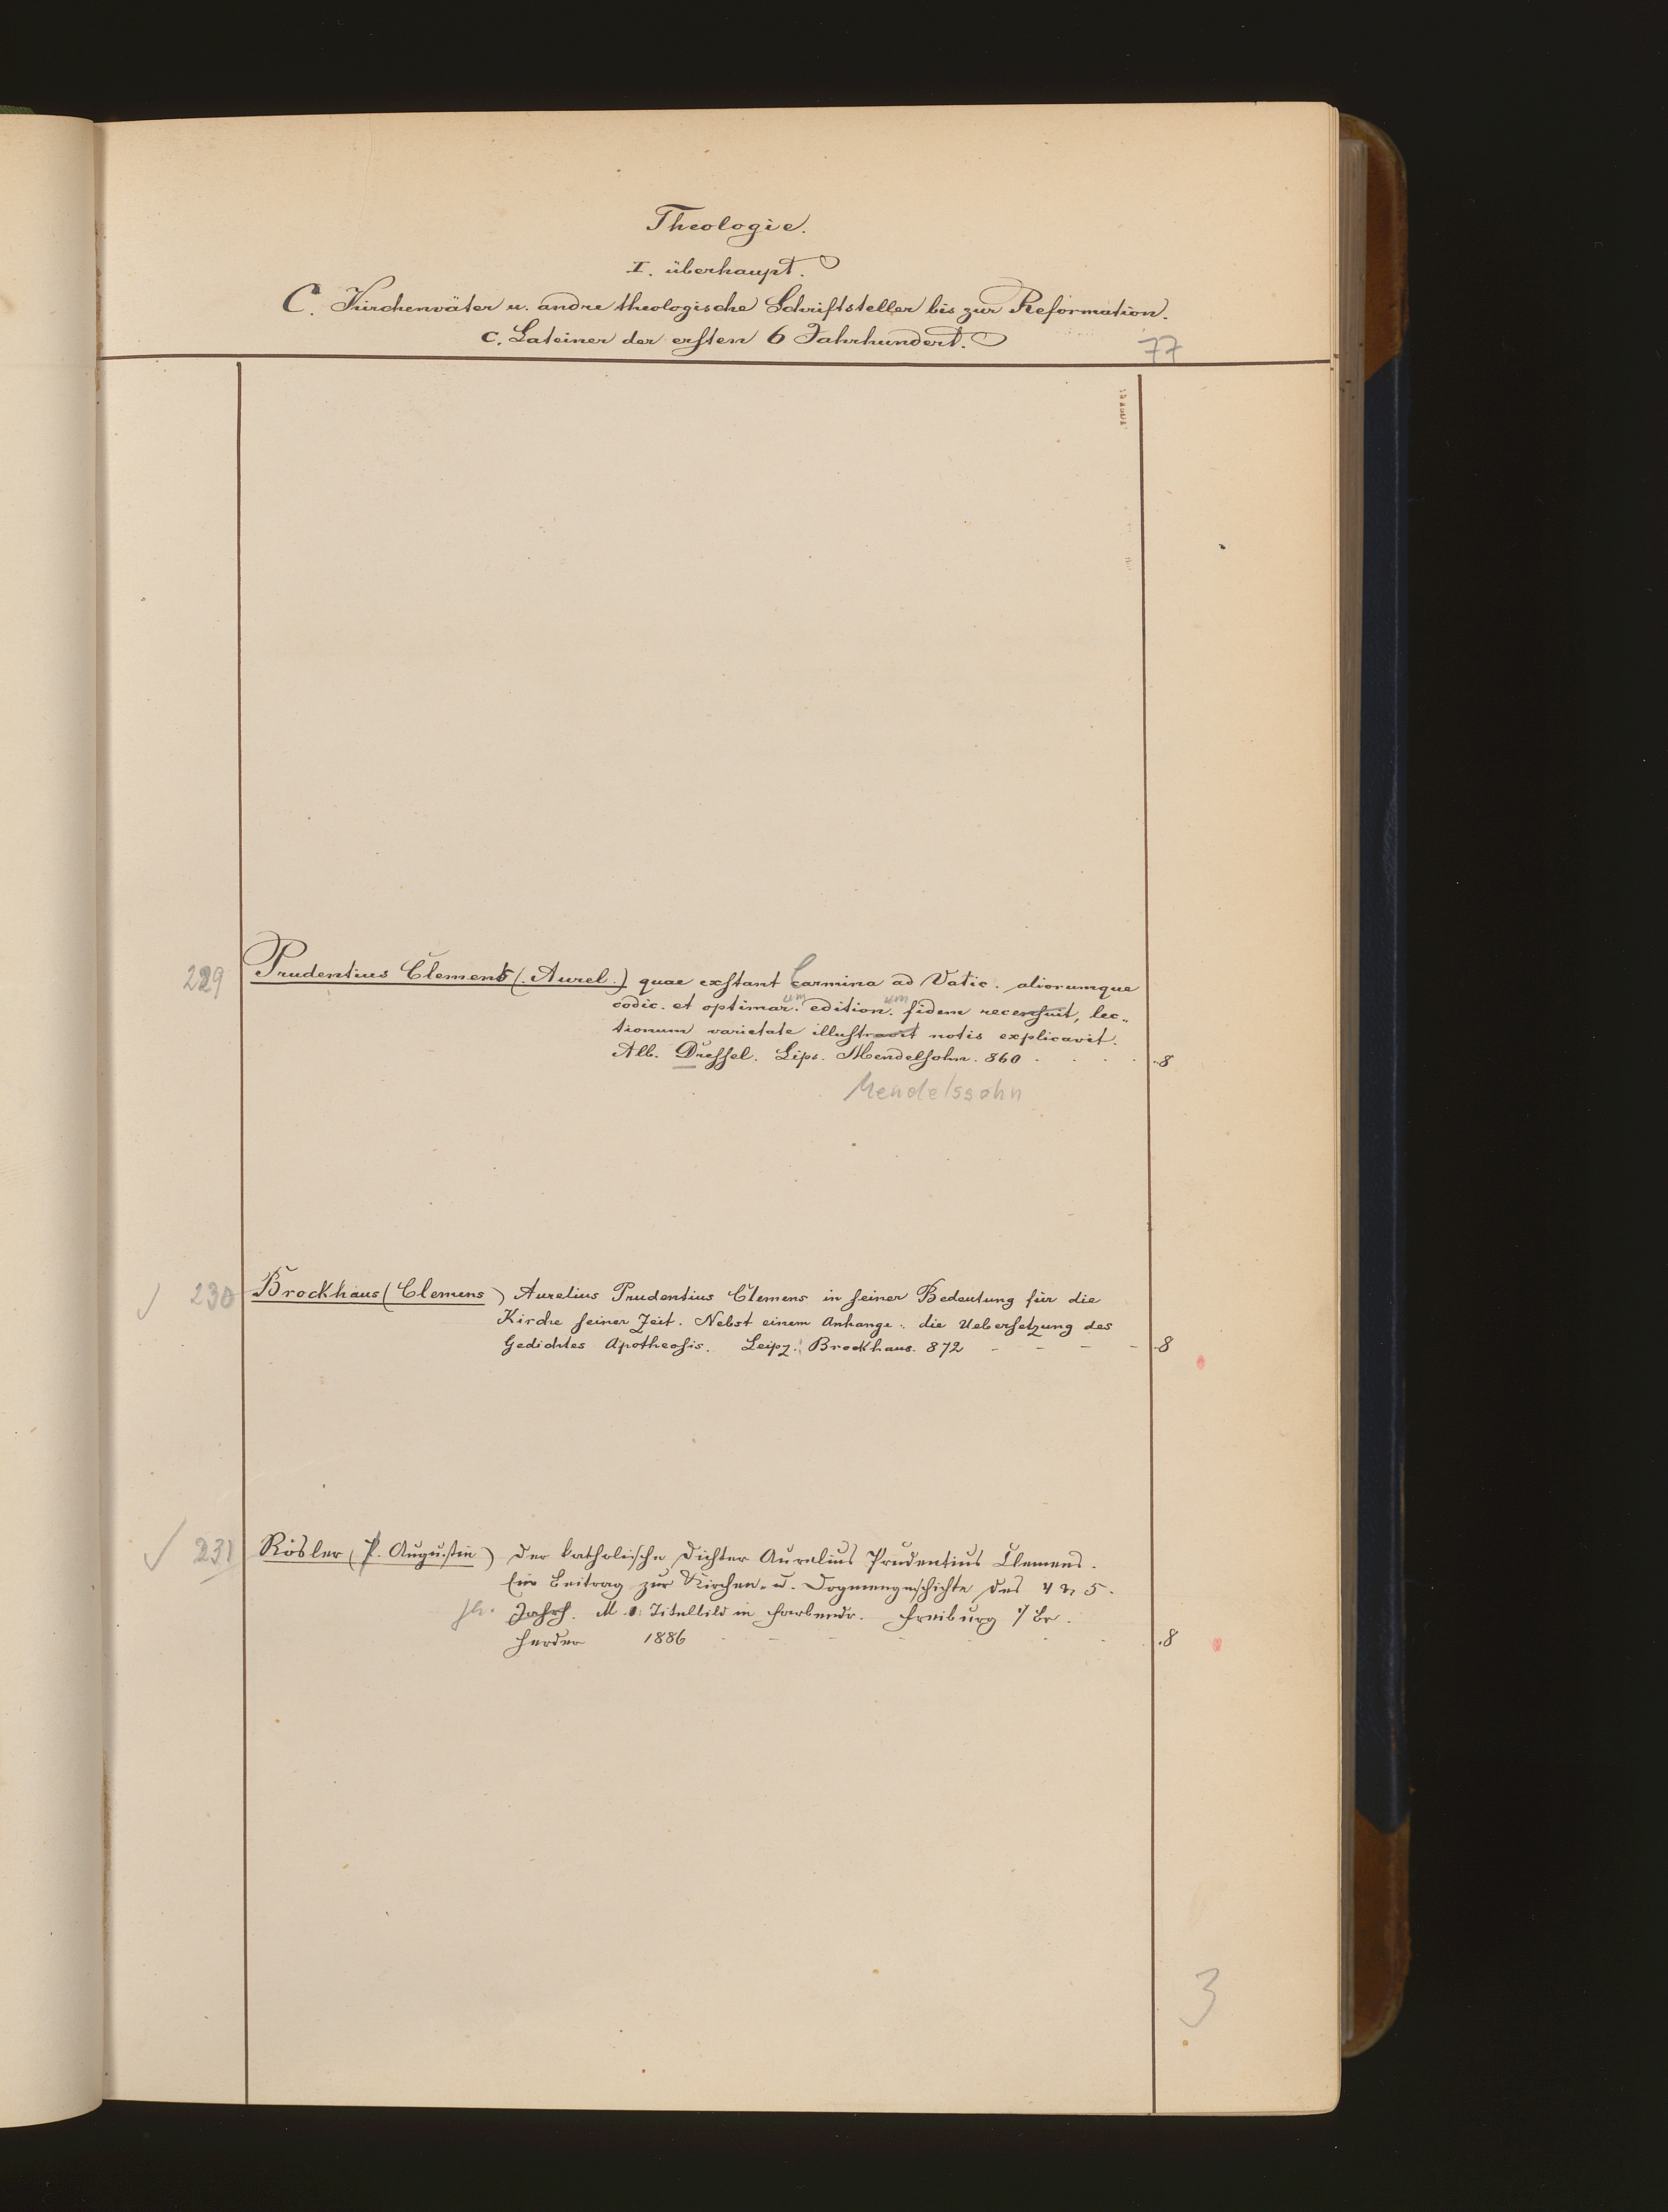 Theologie.
I. überhaupt.
C. Kirchenväter u. andre theologische Schriftsteller bis zur Reformation.
c. Lateiner der ersten 6 Jahrhundert.
77
229 Prudentius Clemens (Aurel.) quae exstant Carmina ad Vatic. aliorumque
codic. et optimar.um edition.um fidem recensuit, lec„
tionum varietate illustravit notis explicavit.
Alb. Dressel. Lips. Mendelsohn. 860 8
Mendelssohn
230 Brockhaus (Clemens) Aurelius Prudentius Clemens in seiner Bedeutung für die
Kirche seiner Zeit. Nebst einem Anhange: die Uebersetzung des
Gedichtes Apotheosis. Leipz. Brockhaus. 872 8
231 Rösler (P. Augustin) Der katholische Dichter Aurelius Prudentius Clemens.
Ein Beitrag zur Kirchen- u. Dogmengeschichte des 4 & 5.
Jh. Jahrh. M 1 Titelbild in Farbendr. Freiburg i/Br.
Herder 1886 8
3